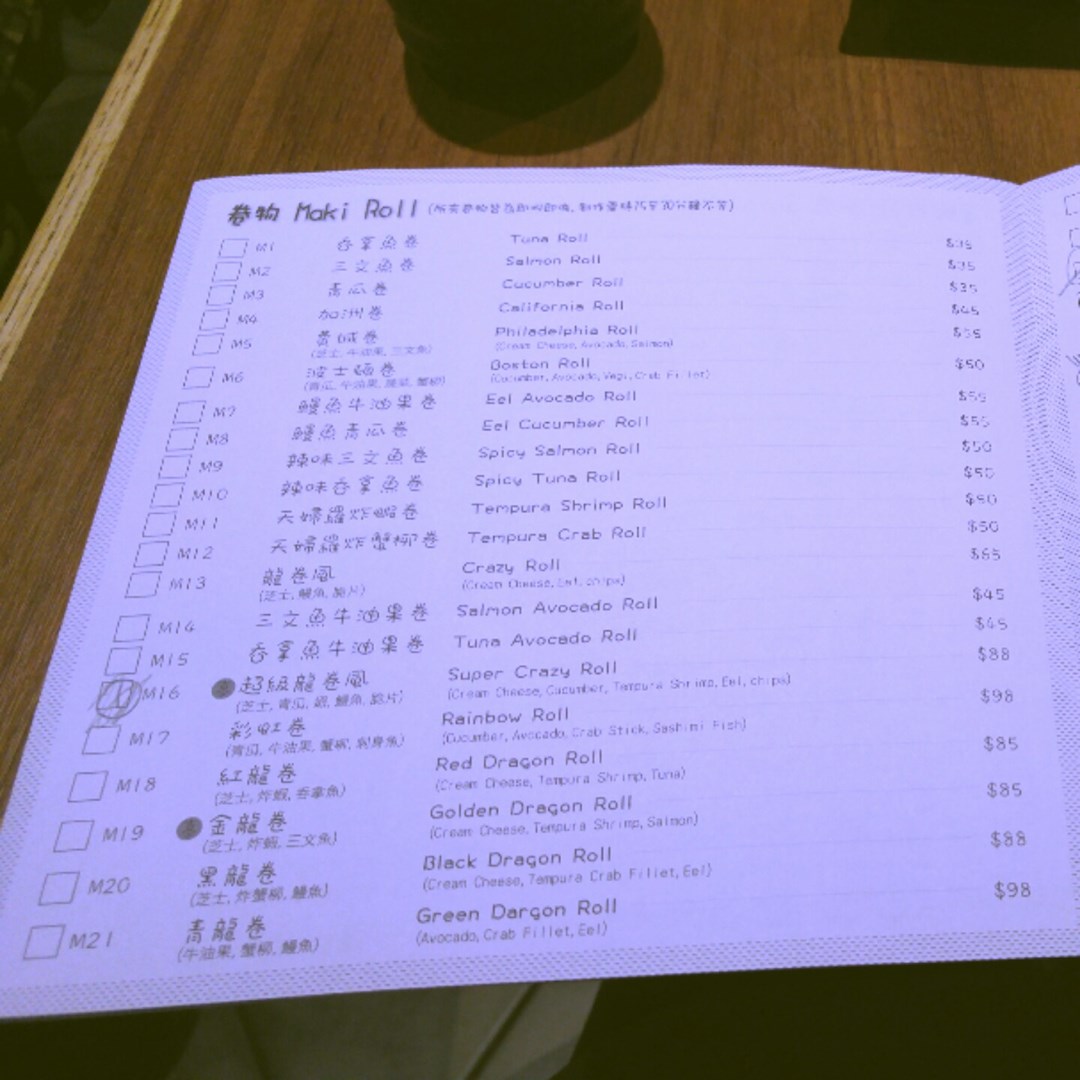 卷物 Maki Roll
M1 吞拿魚卷 Tuna Roll $35
M2 三文魚卷 Salmon Roll $35
M3 青瓜卷 Cucumber Roll $35
M4 加洲卷 California Roll $45
M5 黃城卷 Philadelphia Roll
(芝士, 牛油果, 三文魚) (Cream Cheese, Avocado, Salmon)
M6 波士頓卷 Boston Roll $50
(青瓜, 牛油果, 蔬菜, 蟹柳) (Cucumber, Avocado, Vegi, Crab Fillet)
M7 鰻魚牛油果卷 Eel Avocado Roll $55
M8 鰻魚青瓜卷 Eel Cucumber Roll $55
M9 辣味三文魚卷 Spicy Salmon Roll $50
M10 辣味吞拿魚卷 Spicy Tuna Roll $50
M11 天婦羅炸蝦卷 Tempura Shrimp Roll $50
M12 天婦羅炸蟹柳卷 Tempura Crab Roll $50
M13 龍卷風 Crazy Roll $65
(芝士, 鰻魚, 脆片) (Cream Cheese, Eel, chips)
M14 三文魚牛油果卷 Salmon Avocado Roll $45
M15 吞拿魚牛油果卷 Tuna Avocado Roll $45
M16 超級龍卷風 Super Crazy Roll $88
(芝士, 青瓜, 蝦, 鰻魚, 脆片) (Cream Cheese, Cucumber, Tempura Shrimp, Eel, chips)
M17 彩虹卷 Rainbow Roll $98
(青瓜, 牛油果, 蟹柳, 刺身魚) (Cucumber, Avocado, Crab Stick, Sashimi Fish)
M18 紅龍卷 Red Dragon Roll $85
(芝士, 炸蝦, 吞拿魚) (Cream Cheese, Tempura Shrimp, Tuna)
M19 金龍卷 Golden Dragon Roll $85
(芝士, 炸蝦, 三文魚) (Cream Cheese, Tempura Shrimp, Salmon)
M20 黑龍卷 Black Dragon Roll $88
(芝士, 炸蟹柳, 鰻魚) (Cream Cheese, Tempura Crab Fillet, Eel)
M21 青龍卷 Green Dargon Roll $98
(牛油果, 蟹柳, 鰻魚) (Avocado, Crab Fillet, Eel)